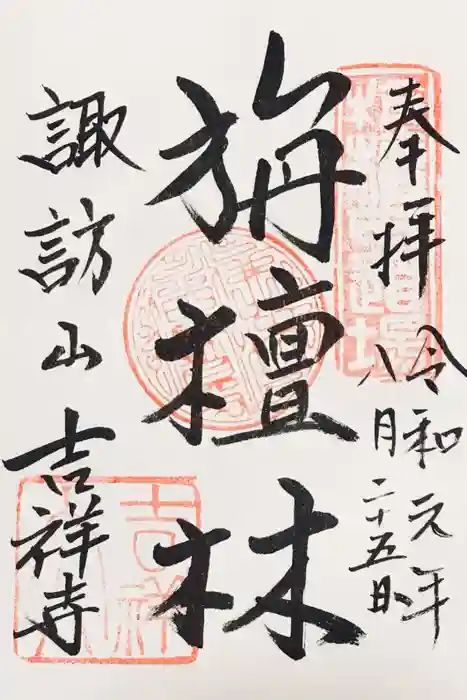 奉拝
令和元年
八月二十五日
旃檀林
諏訪山 吉祥寺